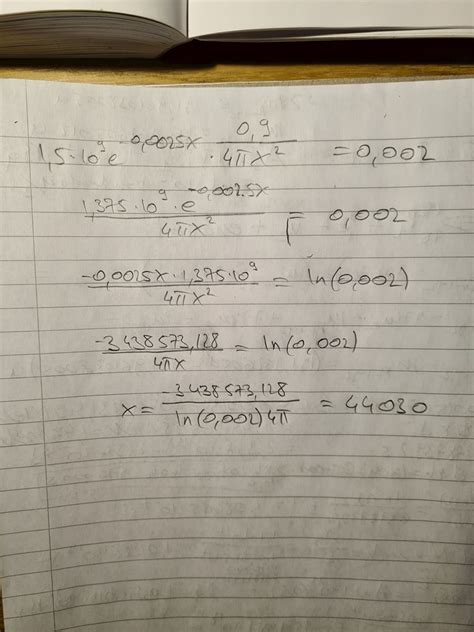 1,5·10⁹e^(-0,0025x) · 0,9/4πx² = 0,002
1,375·10⁹·e^(-0,0025x)/4πx² = 0,002
-0,0025x·1,375·10⁹/4πx² = ln(0,002)
-3438573,128/4πx = ln(0,002)
x = -3438573,128/ln(0,002)4π = 44030